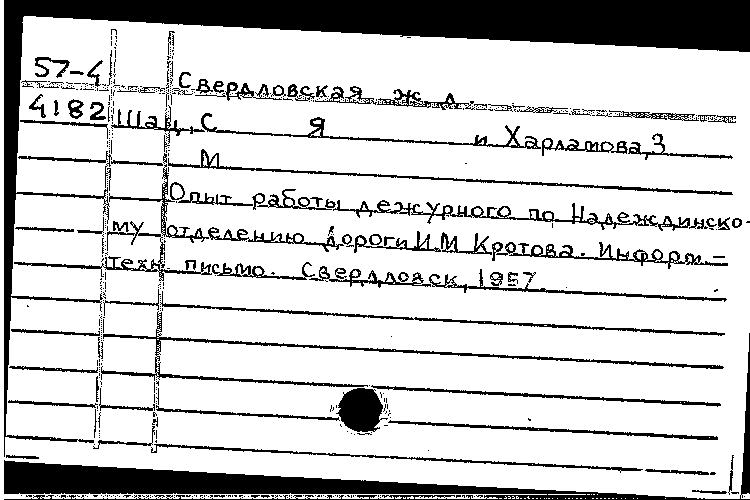 57-4 Свердловская ж. д.
4182 Шац, С Я и Харламова, З
М
Опыт работы дежурного по Надеждинско-
му отделению дороги И.М Кротова. Информ.-
техн. письмо. Свердловск, 1957.